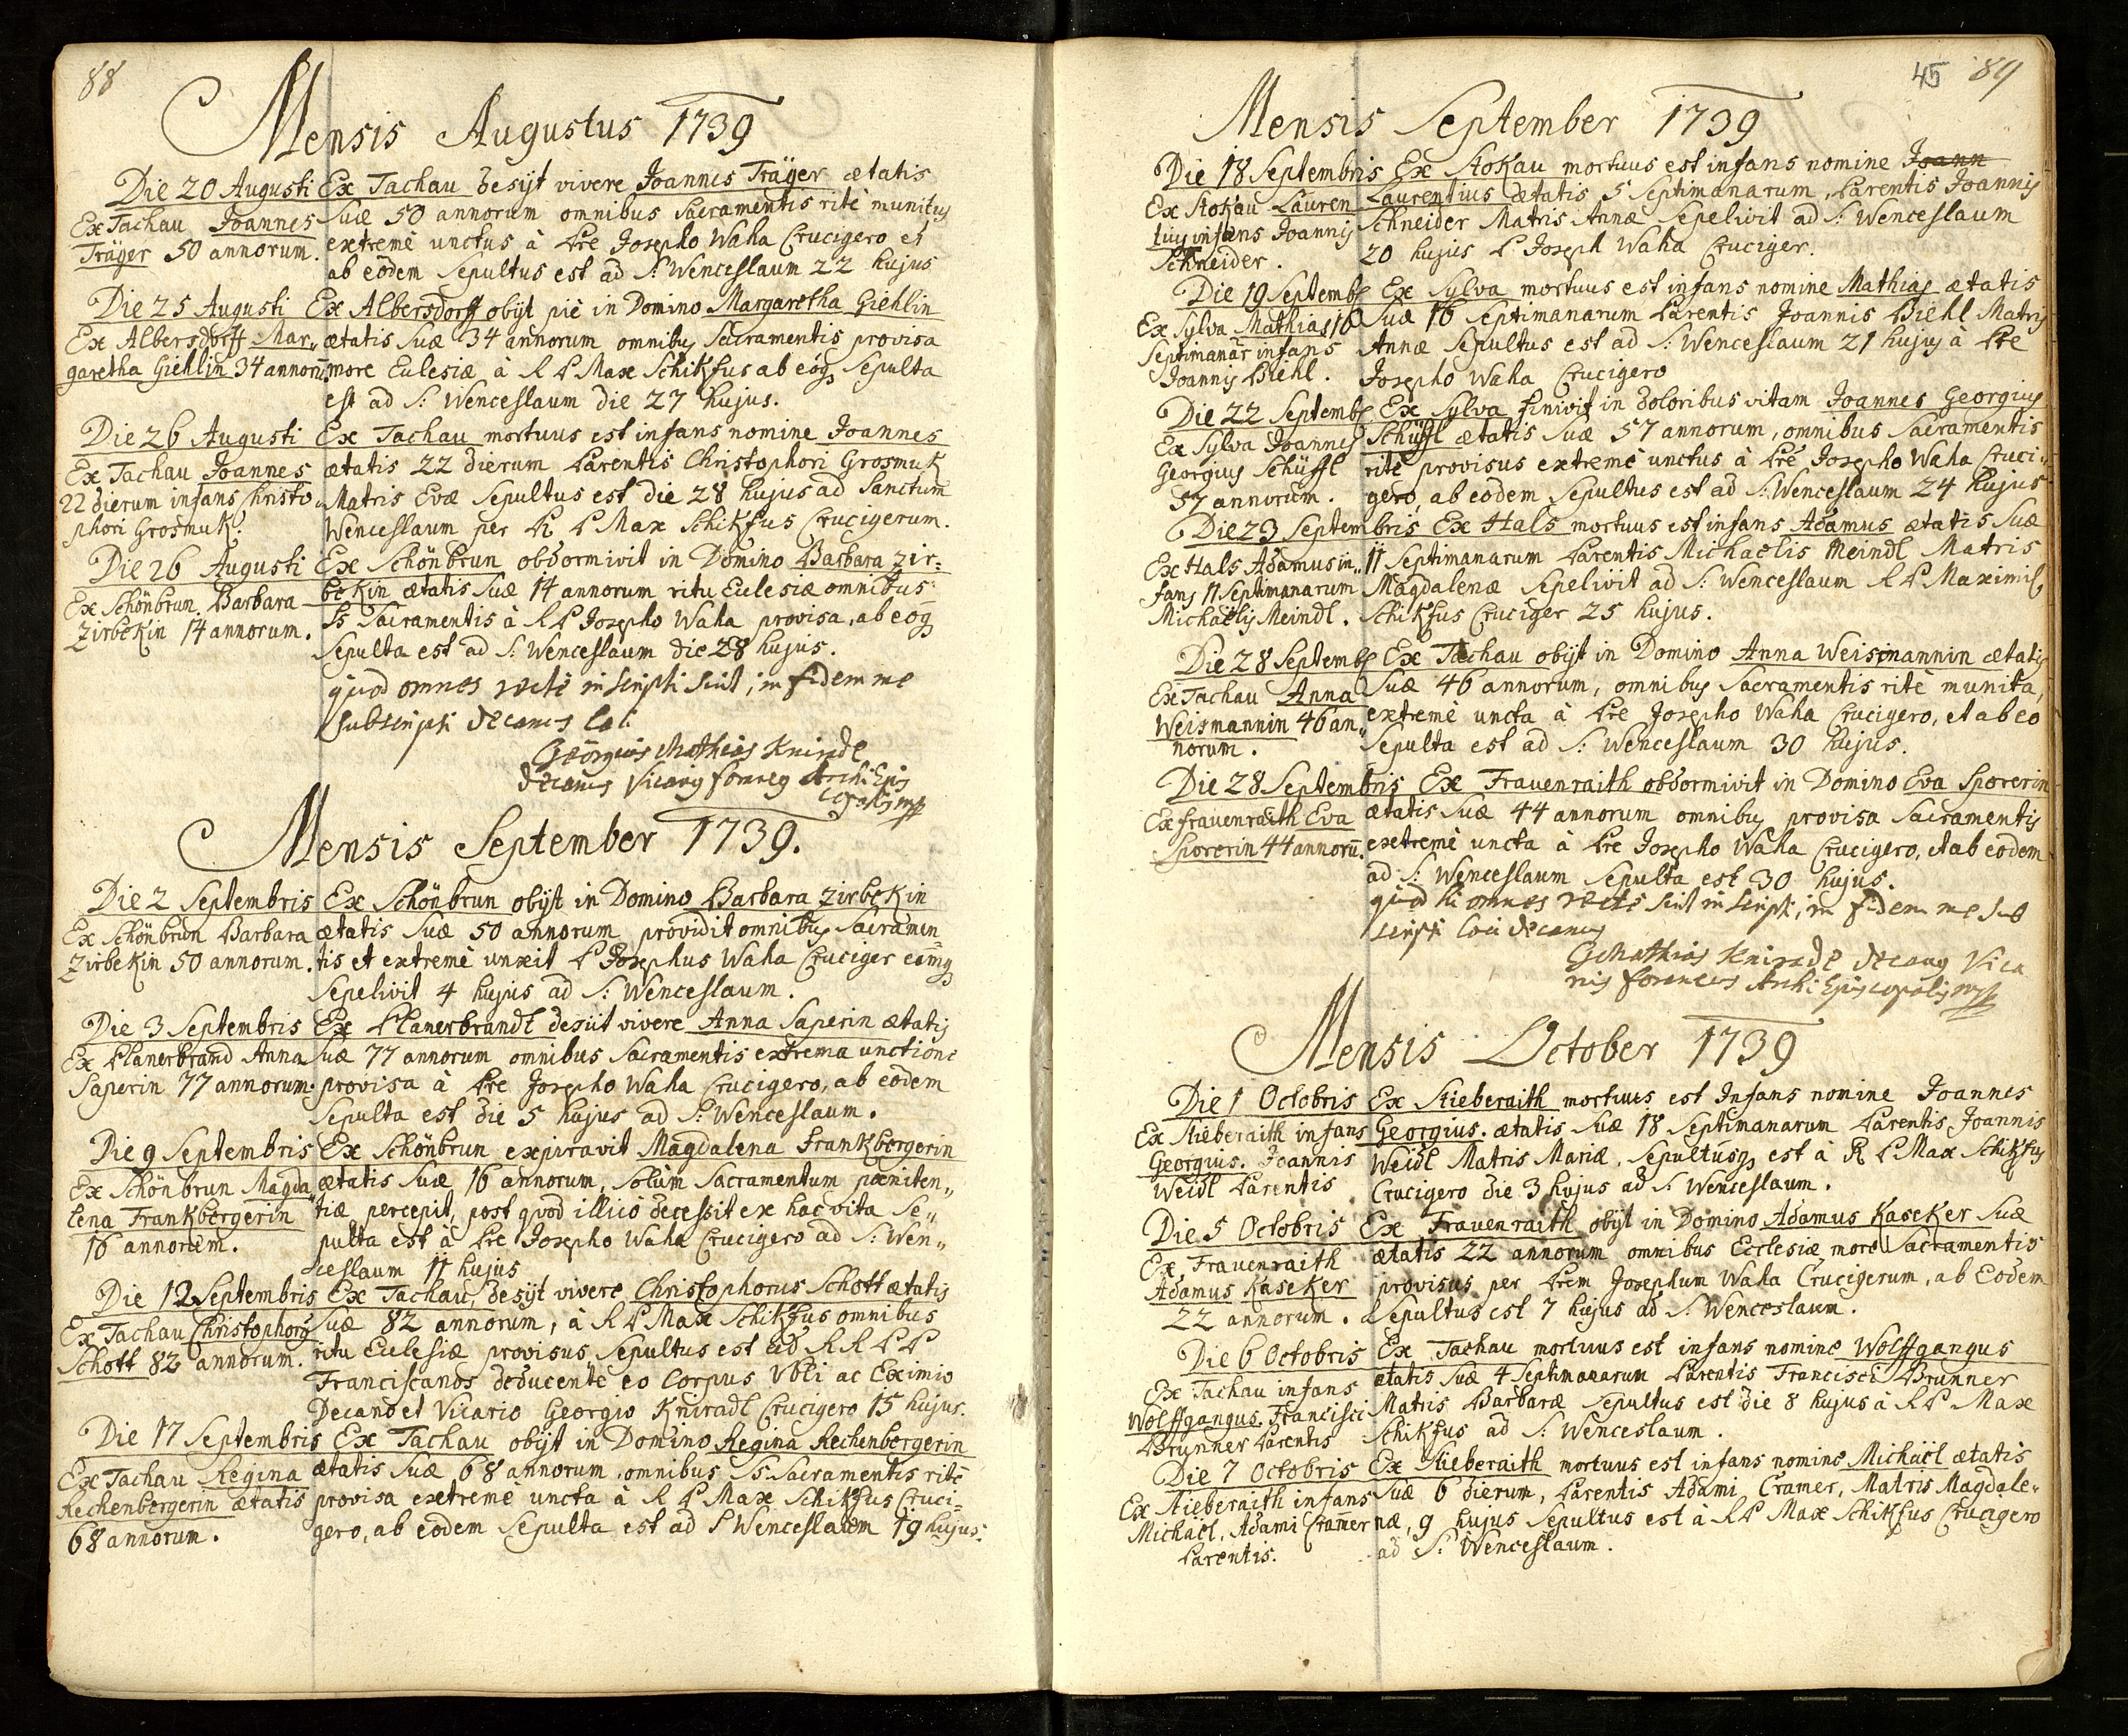 88
Mensis Augustus 1739
Die 20 Augusti
Ex Tachau Joannes
Träger 50 annorum.
Ex Tachau desyt vivere Joannes Träger ætatis
suæ 50 annorum omnibus Sacramentis ritè munitus
extremè unctus à Pre Josepho Waha Crucigero et
ab eodem Sepultus est ad S: Wenceslaum 22 hujus
Die 25 Augusti
Ex Albersdorff Mar„
garetha Giehlin 34 annorū.
Ex Albersdorff obijt piè in Domino Margaretha Giehlin
ætatis Suæ 34 annorum omnibus Sacramentis provisa
more Eulesiæ à R P Max Schikfus ab eoq Sepulta
est ad S: Wenceslaum die 27 hujus.
Die 26 Augusti
Ex Tachau Joannes
22 dierum infans Christo„
phori Grosmuk.
Ex Tachau mortuus est infans nomine Joannes
ætatis 22 dierum Parentis Christophori Grosmuk
Matris Evæ Sepultus est die 28 hujus ad Sanctum
Wenceslaum per R P Max Schikfus Crucigerum.
Die 26 Augusti
Ex Schönbrun Barbara
Zirbekin 14 annorum.
Ex Schönbrun obdormivit in Domino Barbara Zir=
bekin ætatis Suæ 14 annorum ritu Eulesiæ omnibus
Ss Sacramentis à R P Josepho Waha provisa, ab eoq
Sepulta est ad S: Wenceslaum die 28 hujus.
quod omnes recte inscripti sint, in fidem me
subscripsi decanus loci
Georgius Mathias Kniradl
decanus Vicarius foraneus Archi Epis
copalis mp
Mensis September 1739.
Die 2 Septembris
Ex Schönbrun Barbara
Zirbekin 50 annorum.
Ex Schönbrun obijt in Domino Barbara Zirbekin
ætatis Suæ 50 annorum providit omnibus Sacramen„
tis et extremè unxit P Josephus Waha Cruciger eamq
Sepelivit 4 hujus ad S: Wenceslaum.
Die 3 Septembris
Ex Planerbrand Anna
Saperin 77 annorum.
Ex Planerbrandl desiit vivere Anna Saperin ætatis
Suæ 77 annorum omnibus Sacramentis extrema unctione
provisa à Pre Josepho Waha Crucigero, ab eodem
Sepulta est die 5 hujus ad S: Wenceslaum.
Die 9 Septembris
Ex Schönbrun Magda„
lena Frankbergerin
16 annorum.
Ex Schönbrun expiravit Magdalena Frankbergerin
ætatis Suæ 16 annorum, Solùm Sacramentum pæniten„
tiæ percepit, post qvod illiciò decessit ex hac vita Se„
pulta est à Pre Josepho Waha Crucigero ad S: Wen„
ceslaum 11 hujus
Die 12 Septembris
Ex Tachau Christophorus
Schott 82 annorum.
Ex Tachau desijt vivere Christophorus Schott ætatis
Suæ 82 annorum, à R P Max Schikfus omnibus
ritu Eulesiæ provisus Sepultus est ad R R P P
Franciscanos deducente eo Corpus Vbli ac Eximio
Decano et Vicario Georgio Kniradl Crucigero 15 hujus.
Die 17 Septembris
Ex Tachau Regina
Rechenbergerin ætatis
68 annorum.
Ex Tachau obijt in Domino Regina Rechenbergerin
ætatis Suæ 68 annorum omnibus Ss Sacramentis ritè
provisa extremè uncta à R P Max Schikfus Cruci=
gero, ab eodem Sepulta est ad S Wenceslaum 19 hujus.
45 89
Mensis September 1739
Die 18 Septembris
Ex Stokau Lauren
tius infans Joannis
Schneider.
Ex Stokau mortuus est infans nomine Joann
Laurentius ætatis 5 Septimanarum, Parentis Joannis
Schneider Matris Annæ Sepelivit ad S: Wenceslaum
20 hujus P Joseph Waha Cruciger.
Die 19 Septemb
Ex Sylva Mathias 16
Septimanar̄ infans
Joannis Biehl.
Ex Sylva mortuus est infans nomine Mathias ætatis
Suæ 16 Septimanarum Parentis Joannis Biehl Matris
Annæ Sepultus est ad S: Wenceslaum 21 hujus à Pre
Josepho Waha Crucigero
Die 22 Septemb
Ex Sylva Joannes
Georgius Schüffl
57 annorum.
Ex Sylva finivit in doloribus vitam Joannes Georgius
Schüffl ætatis Suæ 57 annorum, omnibus Sacramentis
ritè provisus extremè unctus à Pre Josepho Waha Cruci„
gero, ab eodem Sepultus est ad S: Wenceslaum 24 hujus
Die 23 Septembris
Ex Hals Adamus in„
fans 11 Septimanarum
Michaelis Meindl.
Ex Hals mortuus est infans Adamus ætatis Suæ
11 Septimanarum Parentis Michaelis Meindl Matris
Magdalenæ Sepelivit ad S: Wenceslaum R P Maximil
Schikfus Cruciger 25 hujus.
Die 28 Septemb
Ex Tachau Anna
Weismannin 46 an„
norum.
Ex Tachau obijt in Domino Anna Weismannin ætatis
Suæ 46 annorum, omnibus Sacramentis ritè munita,
extremè uncta à Pre Josepho Waha Crucigero, et ab eo
Sepulta est ad S: Wenceslaum 30 hujus.
Die 28 Septembris
Ex Frauenraith Eva
Sporerin 44 annorū.
Ex Frauenraith obdormivit in Domino Eva Sporerin
ætatis Suæ 44 annorum omnibus provisa Sacramentis
extremè uncta à Pre Josepho Waha Crucigero, et ab eodem
ad S: Wenceslaum Sepulta est 30 hujus.
quod hi omnes recte sint inscripti, in fidem me sub
scripsi loci decanus
G Mathias Kniradl decanus Vica
rius foraneus Archi Episcopalis mp
Mensis October 1739
Die 1 Octobris
Ex Stieberaith infans
Georgius. Joannis
Weidl Parentis
Ex Stieberaith mortuus est Infans nomine Joannes
Georgius. ætatis Suæ 18 Septimanarum Parentis Joannis
Weidl Matris Mariæ, Sepultusq est à R P Max Schikfus
Crucigero die 3 hujus ad S: Wenceslaum.
Die 5 Octobris
Ex Frauenraith
Adamus Kaseker
22 annorum.
Ex Frauenraith obijt in Domino Adamus Kaseker Suæ
ætatis 22 annorum omnibus Ecclesiæ more Sacramentis
provisus per Prem Josephum Waha Crucigerum, ab Eodem
Sepultus est 7 hujus ad S: Wenceslaum.
Die 6 Octobris
Ex Tachau infans
Wolffgangus Francisci
Brunner Parentis
Ex Tachau mortuus est infans nomine Wolffgangus
ætatis Suæ 4 Septimanarum Parentis Francisci Brunner
Matris Barbaræ Sepultus est die 8 hujus à R P Max
Schikfus ad S: Wenceslaum.
Die 7 Octobris
Ex Stieberaith infans
Michäel, Adami Cramer
Parentis.
Ex Stieberaith mortuus est infans nomine Michäel ætatis
Suæ 6 dierum, Parentis Adami Cramer, Matris Magdale„
næ, 9 hujus Sepultus est à R P Max Schikfus Crucigero
ad S: Wenceslaum.